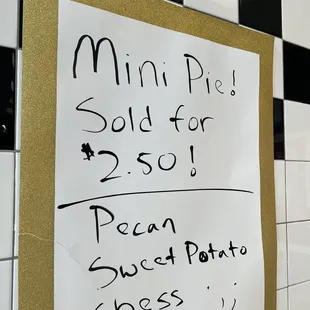 Mini Pie!
Sold for
$2.50!
Pecan
Sweet Potato
chess